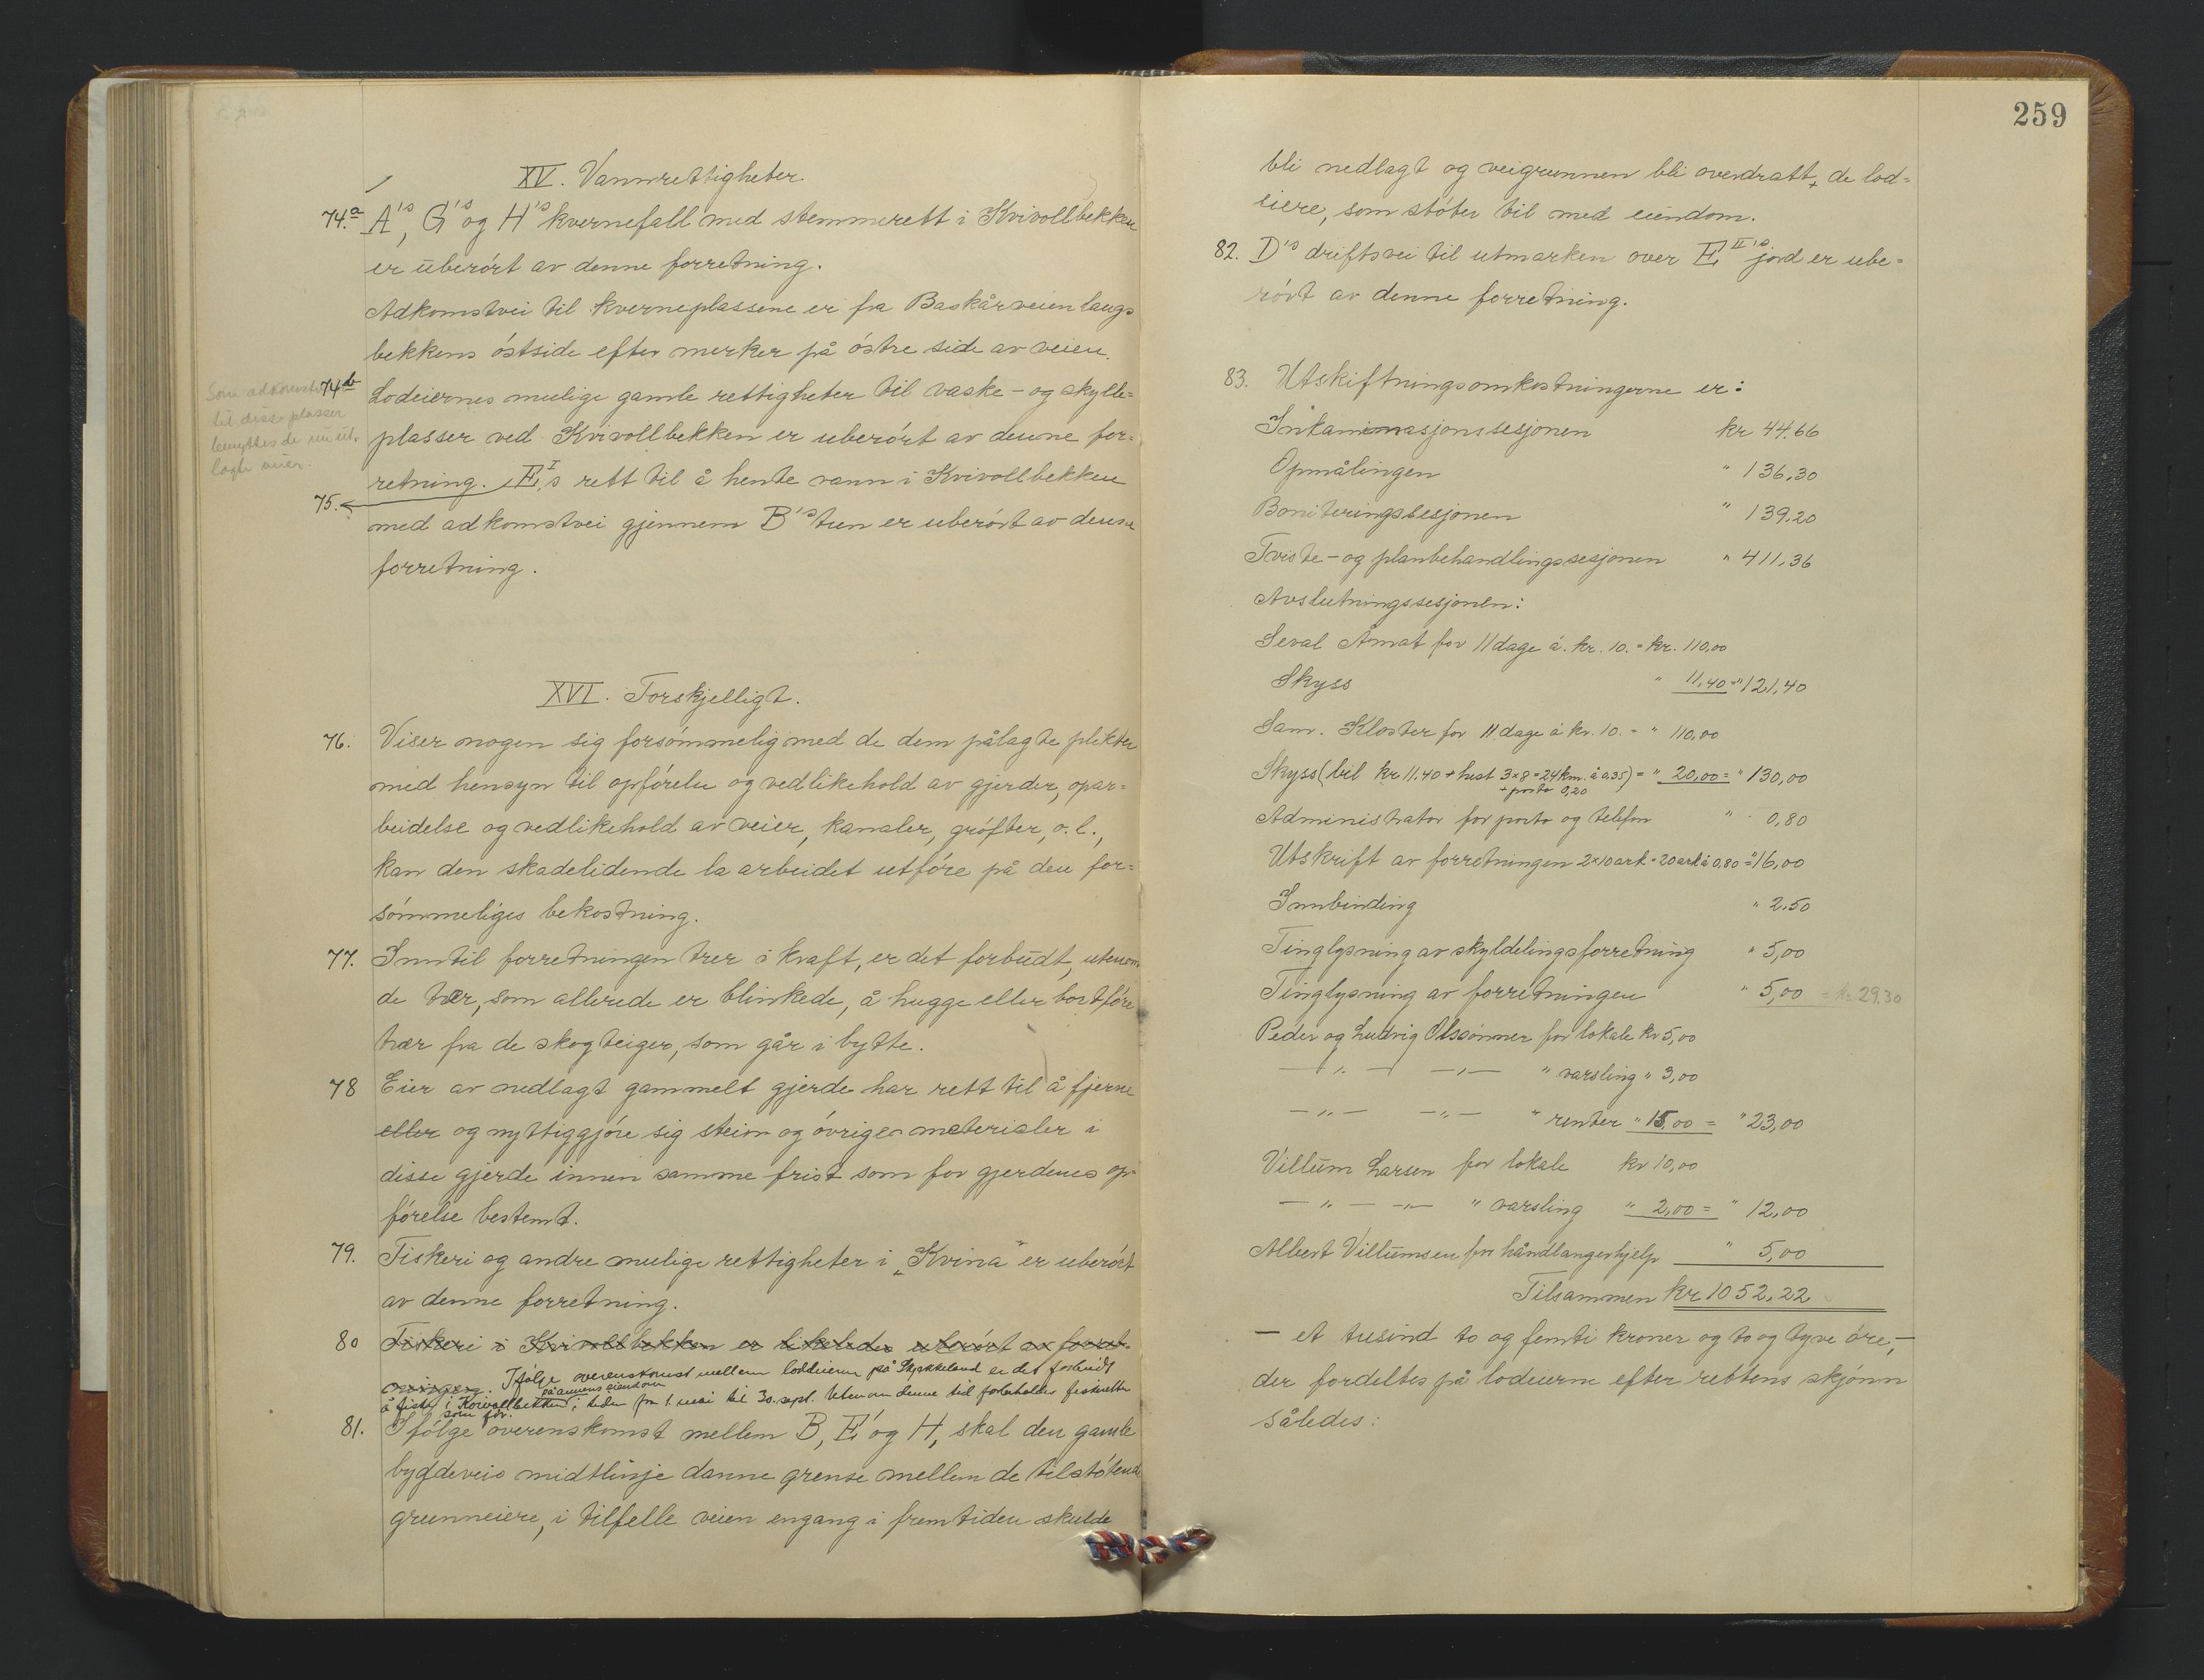 XV. Vannrettigheter
74.a A's, G's og H's kvernefall med stemmerett i Kvivollbekken
er uberørt av denne forretning.
Adkomstvei til kverneplassene er fra Baskårveien langs
bekkens østside efter merker på østre side av veien.
Som adkomst
til disse plasser
benyttes de nu ut-
lagte veier.
74b Lodeiernes mulige gamle rettigheter til vaske- og skylle=
plasser ved Kvivollbekken er uberørt av denne for=
retning. EI's rett til å hente vann i Kvivollbekken
75.
med adkomstvei gjennem B's tun er uberørt av denne
forretning.
XVI. Forskjelligt.
76. Viser nogen sig forsømmelig med de dem pålagte plikter
med hensyn til opførelse og vedlikehold av gjerder, opar=
beidelse og vedlikehold av veier, kanaler, grøfter, o. l.,
kan den skadelidende la arbeidet utføre på den for=
sømmeliges bekostning.
77. Inntil forretningen trer i kraft, er det forbudt, utenom
de trær, som allerede er blinkede, å hugge eller bortføre
trær fra de skogteiger, som går i bytte.
78 Eier av nedlagt gammelt gjerde har rett til å fjerne
eller og nyttiggjøre sig stein og øvrige materialer i
disse gjerde innen samme frist som for gjerdenes op-
førelse bestemt.
79. Fiskeri og andre mulige rettigheter i „Kvina" er uberørt
av denne forretning.
80 Fiskeri i Kvivollbekken er likeledes uberørt av forret-
ningen. Ifølge overenskomst mellem loddeierne på Skjekkeland er det forbudt
på annens eiendom
å fiske i Kvivollbekken i tiden fra 1. mai til 30. sept. Utenom denne tid forbeholdes fiskerett
som før.
81. Ifølge overenskomst mellem B, E' og H, skal den gamle
bygdeveis midtlinje danne grense mellem de tilstøtende
grunneiere, i tilfelle veien engang i fremtiden skulde
259
bli nedlagt og veigrunnen bli overdratt, de lod=
eiere, som støter til med eiendom.
82. D's driftsvei til utmarken over EII's jord er ube=
rørt av denne forretning.
83. Utskiftningsomkostningerne er:
Inkaminasjonssesjonen kr 44.66
Opmålingen " 136,30
Boniteringssesjonen " 139,20
Tviste- og planbehandlingssesjonen " 411,36
Avslutningssesjonen:
Seval Åmot for 11 dage á. kr. 10. = kr. 110,00
Skyss " 11,40 = " 121,40
Sam. Kloster for 11 dage á kr. 10. = " 110,00
Skyss (bil kr 11.40 + hest 3x8=24 km. à 0.35) = " 20,00 = " 130,00
+ porto 0,20
Administrator for porto og telefon " 0,80
Utskrift av forretningen 2x10 ark = 20 ark á 0,80 = " 16,00
Innbinding " 2.50
Tinglysning av skyldelingsforretning " 5,00
Tinglysning av forretningen " 5,00 = kr 29.30
Peder og Ludvig Olssønner for lokale kr 5,00
— " — — " — " varsling " 3,00
— " — — " — " renter " 15,00 = " 23,00
Villum Larsen for lokale kr 10,00
— " — — " — " varsling " 2,00 = " 12,00
Albert Villumsen for håndlangerhjelp " 5,00
Tilsammen kr 1052,22
— et tusind to og femti kroner og to og tyve øre, —
der fordeltes på lodeierne efter rettens skjønn
således: